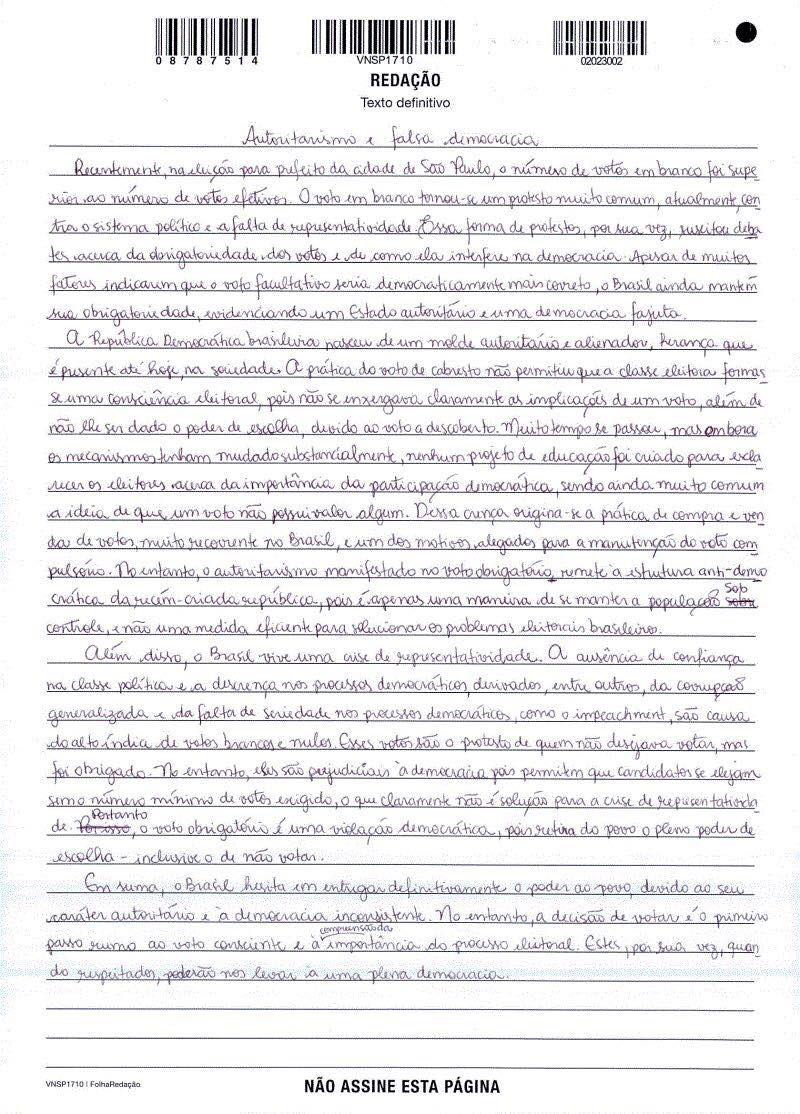 08787514
VNSP1710
02023002
REDAÇÃO
Texto definitivo
Autoritarismo e falsa democracia
Recentemente, na eleição para prefeito da cidade de São Paulo, o número de votos em branco foi supe
rior ao número de votos efetivos. O voto em branco tornou-se um protesto muito comum, atualmente, con
tra o sistema político e a falta de representatividade. Essa forma de protestos, por sua vez, suscitou deba
tes acerca da obrigatoriedade dos votos e de como ela interfere na democracia. Apesar de muitos
fatores indicarem que o voto facultativo seria democraticamente mais correto, o Brasil ainda mantém
sua obrigatoriedade, evidenciando um Estado autoritário e uma democracia fajuta.
A República Democrática brasileira nasceu de um molde autoritário e alienador, herança que
é presente até hoje, na sociedade. A prática do voto de cabresto não permitiu que a classe eleitora formas
se uma consciência eleitoral, pois não se enxergava claramente as implicações de um voto, além de
não lhe ser dado o poder de escolha, devido ao voto a descoberto. Muito tempo se passou, mas embora
os mecanismos tenham mudado substancialmente, nenhum projeto de educação foi criado para escla
recer os eleitores acerca da importância da participação democrática, sendo ainda muito comum
a ideia de que um voto não possui valor algum. Dessa crença origina-se a prática de compra e ven
da de votos, muito recorrente no Brasil, e um dos motivos alegados para a manutenção do voto com
pulsório. No entanto, o autoritarismo manifestado no voto obrigatório, remete à estrutura anti-demo
crática da recém-criada república, pois é apenas uma maneira de se manter a população sobre Sob
controle, e não uma medida eficiente para solucionar os problemas eleitorais brasileiros.
Além disso, o Brasil vive uma crise de representatividade. A ausência de confiança
na classe política e a descrença nos processos democráticos, derivados, entre outros, da corrupção
generalizada e da falta de seriedade nos processos democráticos, como o impeachment, são causa
do alto índice de votos brancos e nulos. Esses votos são o protesto de quem não desejava votar, mas
foi obrigado. No entanto, eles são prejudiciais à democracia pois permitem que candidatos se elejam
sem o número mínimo de votos exigido, o que claramente não é solução para a crise de representativida
de. Por isso Portanto, o voto obrigatório é uma violação democrática, pois retira do povo o pleno poder de
escolha - inclusive o de não votar.
Em suma, o Brasil hesita em entregar definitivamente o poder ao povo, devido ao seu
caráter autoritário e à democracia inconsistente. No entanto, a decisão de votar é o primeiro
passo rumo ao voto consciente e à compreensão da importância do processo eleitoral. Estes, por sua vez, quan
do respeitados, poderão nos levar à uma plena democracia.
VNSP1710 | FolhaRedação
NÃO ASSINE ESTA PÁGINA